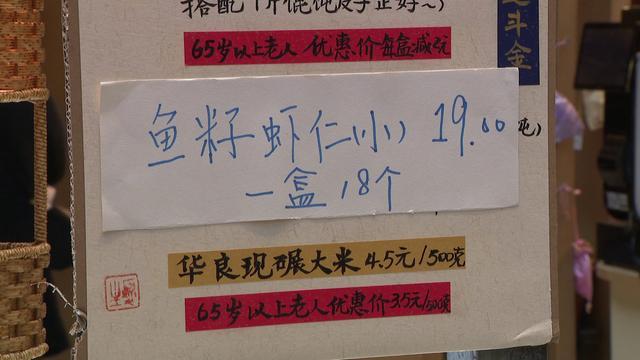 搭配1斤馄饨皮子正好~)
65岁以上老人 优惠价每盒减2元
斗金
鱼籽虾仁(小) 19.00
吨)
一盒18个
华良现碾大米4.5元/500克
65岁以上老人优惠价3.5元/500克